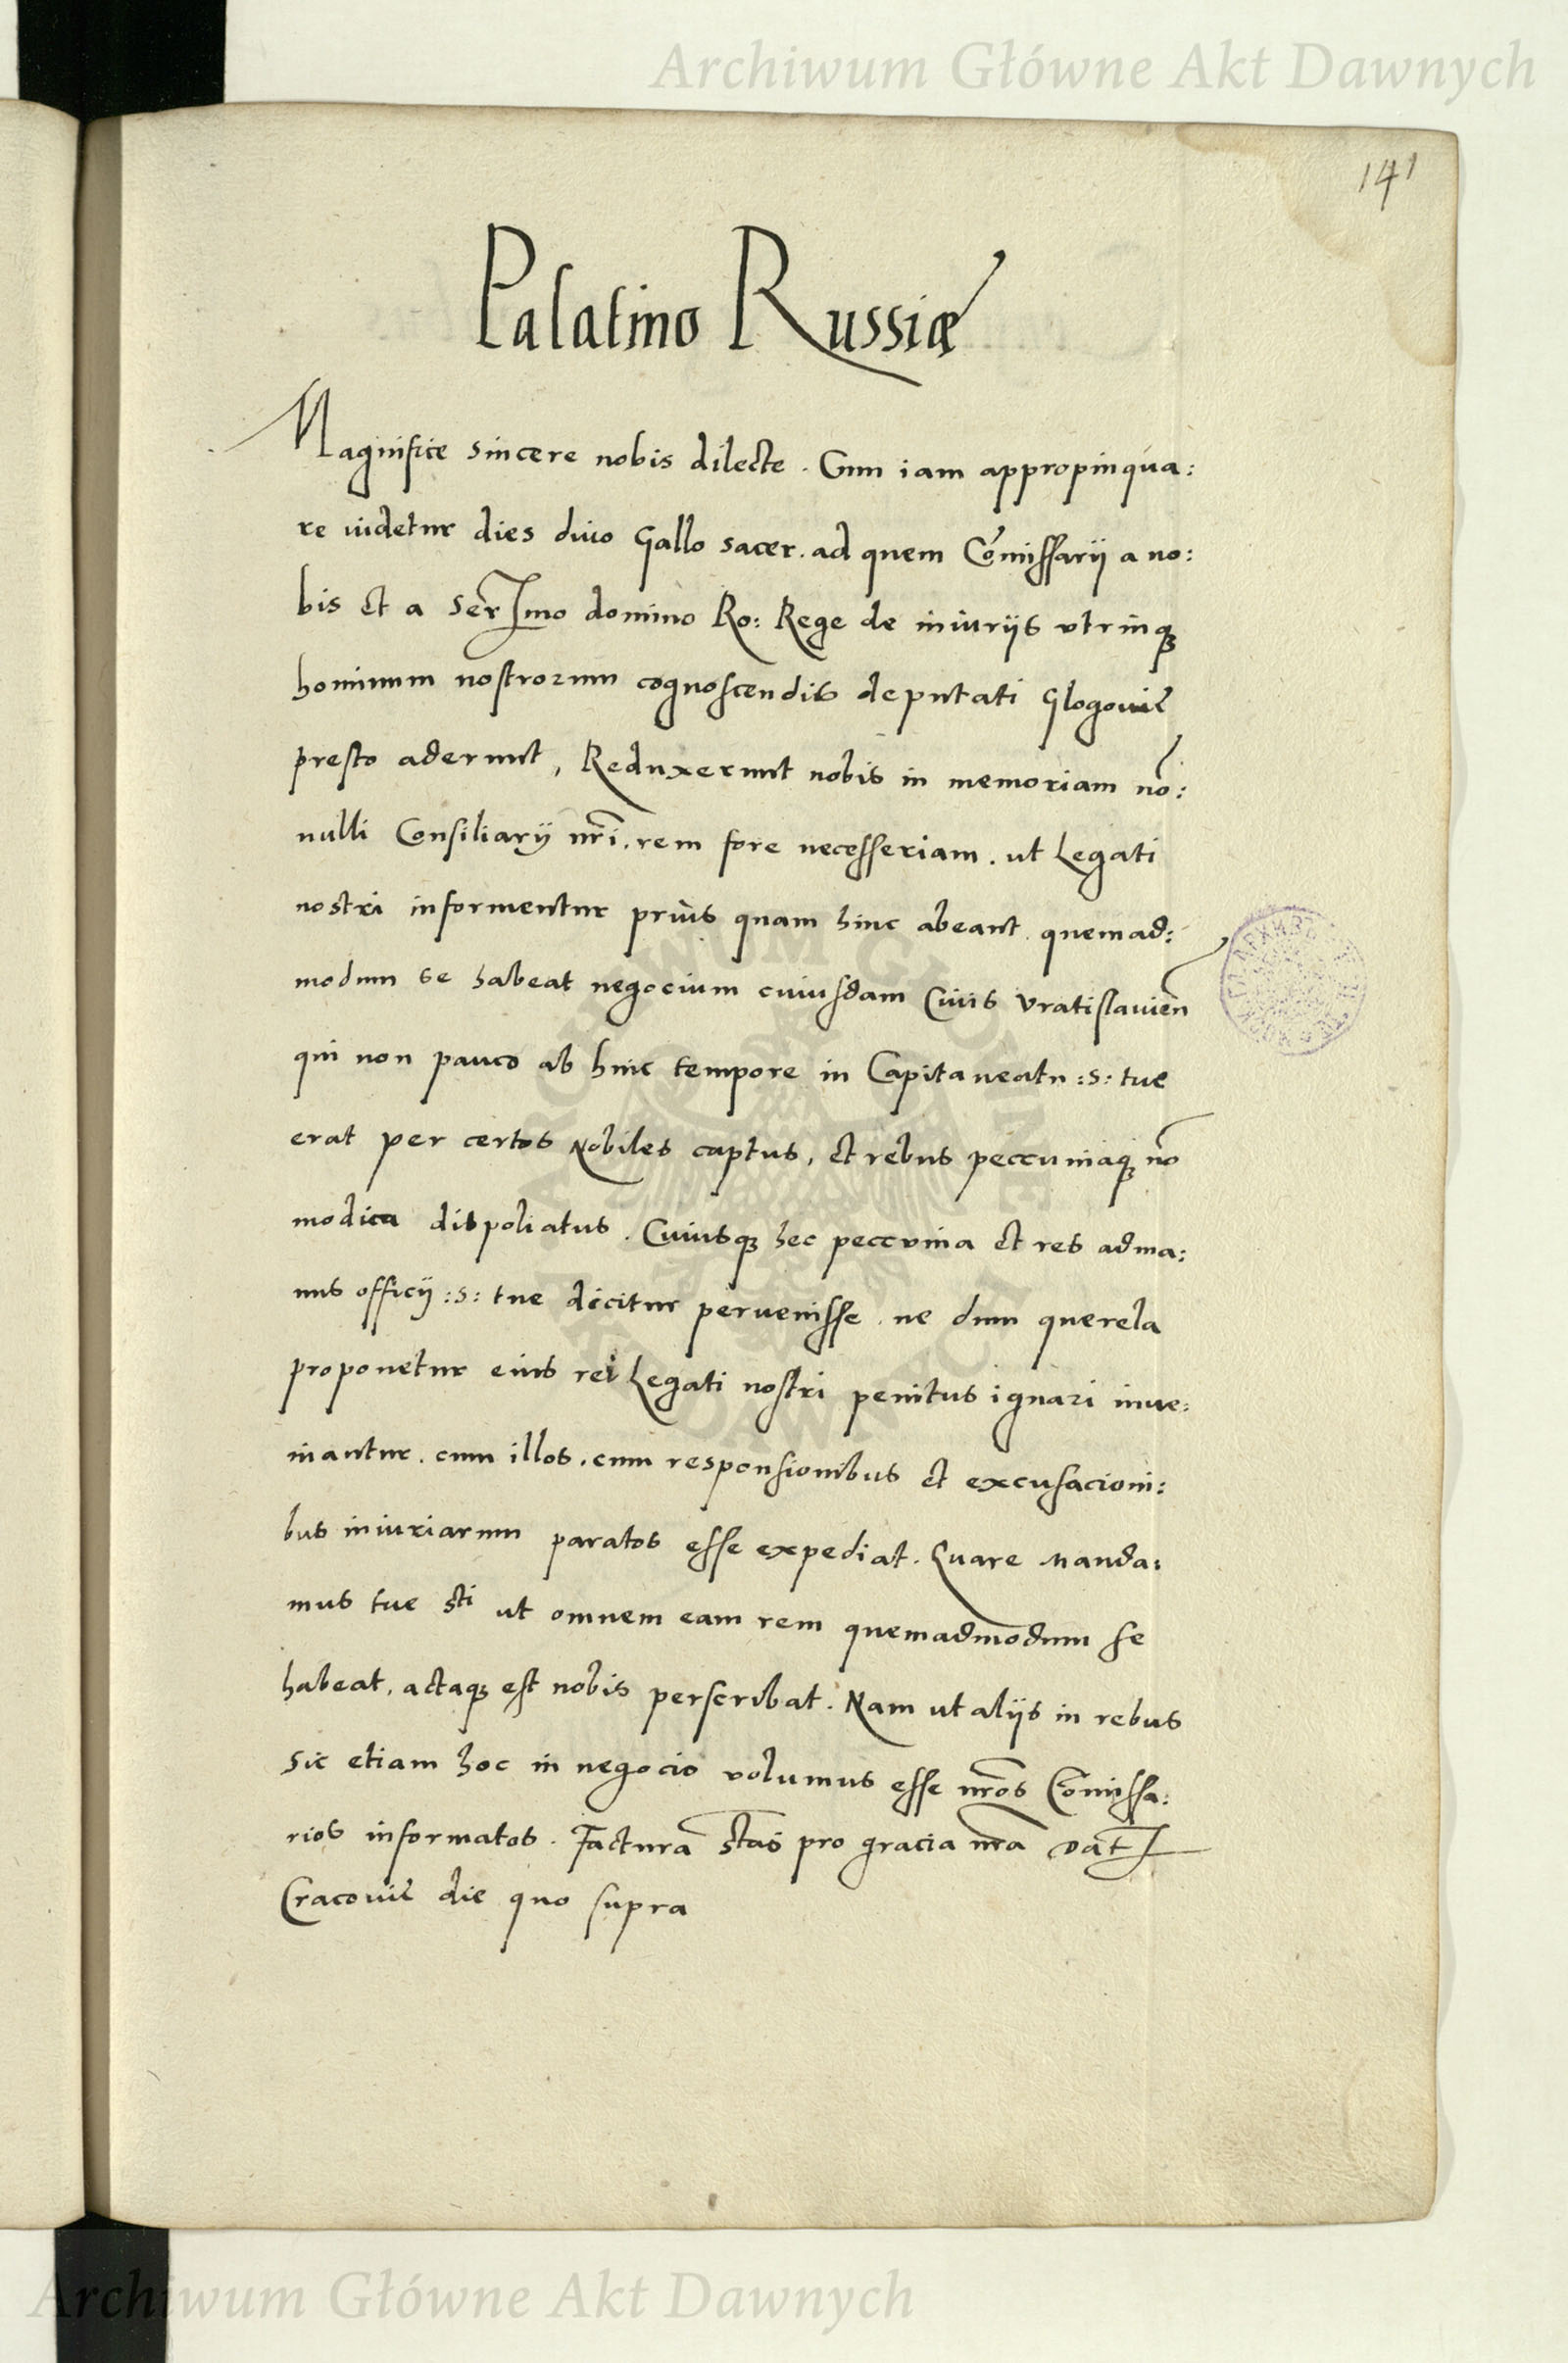 Archiwum Główne Akt Dawnych
141
Palatino Russiæ
Magnifice sincere nobis dilecte. Cum iam appropinqua:
re videtur dies divo Gallo sacer. ad quem Cōmissarij a no:
bis et a Serimo domino Ro: Rege de iniurijs vtrinq3
hominum nostrorum cognoscendis deputati Glogovie
presto aderunt, Reduxerunt nobis in memoriam nō:
nulli Consiliarij nri. rem fore necesseriam. ut Legati
nostri informentur prius quam hinc abeant quemad:
modum se habeat negocium cuiusdam Civis Vratislavien
qui non pauco ab hinc tempore in Capitaneatu :s: tue
erat per certos Nobiles captus, et rebus peccuniaq3 nō
modica dispoliatus. Cuiusq3 hec peccunia et res ad ma:
nus officij :s: tue dicitur pervenisse. ne dum querela
proponetur eius rei Legati nostri penitus ignari inve:
niantur. cum illos. cum responsionibus et excusacioni:
bus iniuriarum paratos esse expediat. Quare Manda:
mus tue sti ut omnem eam rem quemadmodum se
habeat, actaq3 est nobis perscribat. Nam ut alijs in rebus
sic etiam hoc in negocio volumus esse nros Cōmissa:
rios informatos. Factura stas pro gracia nra Dat
Cracovie die quo supra
ARCHIWUM GŁÓWNE
AKT DAWNYCH
Archiwum Główne Akt Dawnych